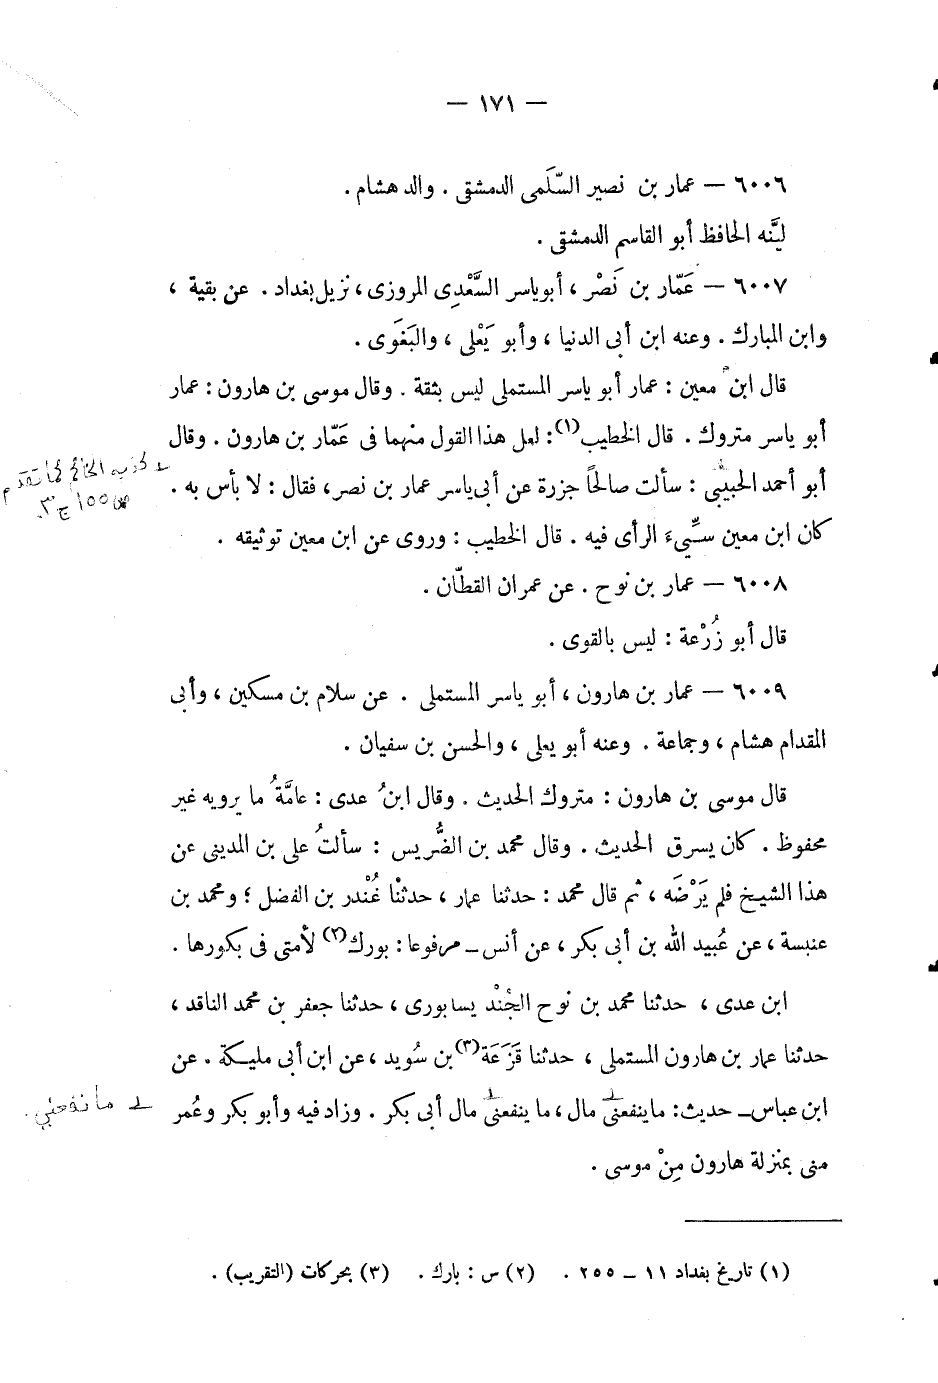 — ١٧١ —
٦٠٠٦ — عمار بن نصير السّلَمى الدمشقى . والد هشام .
ليَّنه الحافظ أبو القاسم الدمشقى .
٦٠٠٧ — عَمّار بن نَصْر ، أبوياسر السَّعْدِى المروزى ، نزيل بغداد . عن بقية ،
وابن المبارك . وعنه ابن أبى الدنيا ، وأبو يَعْلى ، والبَغَوى .
قال ابن معين : عمار أبو ياسر المستملى ليس بثقة . وقال موسى بن هارون : عمار
أبو ياسر متروك . قال الخطيب(١): لعل هذا القول منهما فى عَمّار بن هارون . وقال
أبو أحمد الحبيبى : سألت صالحاً جزرة عن أبى ياسر عمار بن نصر، فقال : لا بأس به .
كذبه الحاكم كما تقدم
ص ١٥٥ ج ٣
كان ابن معين سيِّىءَ الرأى فيه . قال الخطيب : وروى عن ابن معين توثيقه .
٦٠٠٨ — عمار بن نوح . عن عمران القطّان .
قال أبو زُرْعة : ليس بالقوى .
٦٠٠٩ — عمار بن هارون ، أبو ياسر المستملى . عن سلام بن مسكين ، وأبى
المقدام هشام ، وجماعة . وعنه أبو يعلى ، والحسن بن سفيان .
قال موسى بن هارون : متروك الحديث . وقال ابنُ عدى : عامَّةُ ما يرويه غير
محفوظ . كان يسرق الحديث . وقال محمد بن الضُّريس : سألتُ على بن المدينى عن
هذا الشيخ فلم يَرْضَه ، ثم قال محمد : حدثنا عمار ، حدثنا غُنْدر بن الفضل ؛ ومحمد بن
عنبسة ، عن عُبيد الله بن أبى بكر ، عن أنس ـ مرفوعا : بورك(٢) لأمتى فى بكورها .
ابن عدى ، حدثنا محمد بن نوح الجُنْد يسابورى ، حدثنا جعفر بن محمد الناقد ،
حدثنا عمار بن هارون المستملى ، حدثنا قَزَعَة(٣) بن سُويد ، عن ابن أبى مليكة . عن
ابن عباس ـ حديث : ماينفعنى مال ، ما ينفعنى مال أبى بكر . وزاد فيه وأبو بكر وعُمر
ما نفعني .
منى بمنزلة هارون مِنْ موسى .
(١) تاريخ بغداد ١١ ـ ٢٥٥ . (٢) س : بارك . (٣) بحركات (التقريب) .